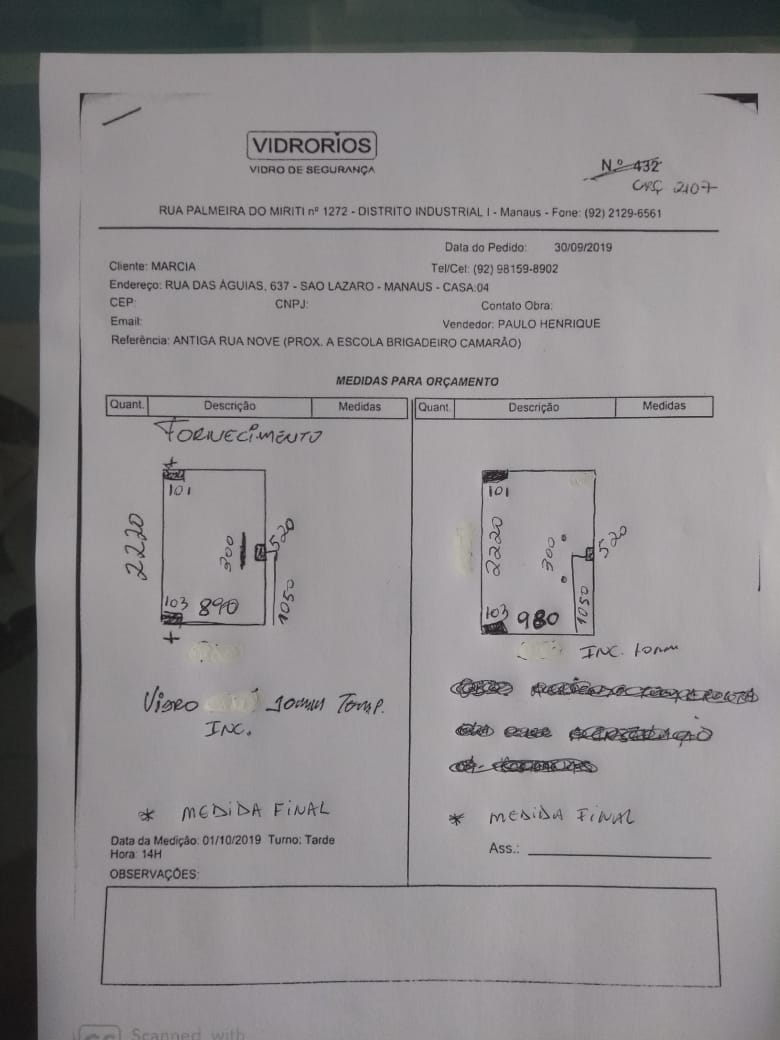 VIDRORIOS
VIDRO DE SEGURANÇA
N.º 432
2107
RUA PALMEIRA DO MIRITI nº 1272 - DISTRITO INDUSTRIAL I - Manaus - Fone: (92) 2129-6561
Data do Pedido: 30/09/2019
Cliente: MARCIA Tel/Cel: (92) 98159-8902
Endereço: RUA DAS ÁGUIAS, 637 - SAO LAZARO - MANAUS - CASA:04
CEP: CNPJ: Contato Obra:
Email: Vendedor: PAULO HENRIQUE
Referência: ANTIGA RUA NOVE (PROX. A ESCOLA BRIGADEIRO CAMARÃO)
MEDIDAS PARA ORÇAMENTO
Quant. Descrição Medidas Quant. Descrição Medidas
FORNECIMENTO
101
2220
300
520
103 890
1050
VIDRO 10mm TEMP.
INC.
* MEDIDA FINAL
101
2220
300
520
103 980
1050
INC. 10mm
* MEDIDA FINAL
Data da Medição: 01/10/2019 Turno: Tarde
Hora: 14H
Ass.:
OBSERVAÇÕES:
Scanned with